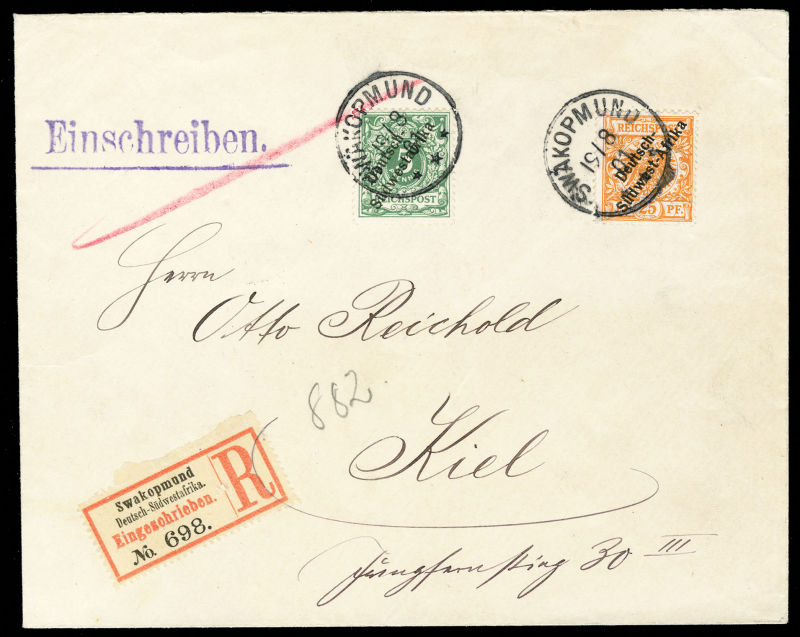 Einschreiben.
SWAKOPMUND
8/8
5
Deutsch-
Südwest-Afrika
REICHSPOST
SWAKOPMUND
15/8
REICHSPOST
Deutsch-
Südwest-Afrika
25 PF.
Herrn
Otto Reichold
882
Kiel
Swakopmund
Deutsch-Südwestafrika.
Eingeschrieben.
No. 698.
R
Jungfernstieg 30 III